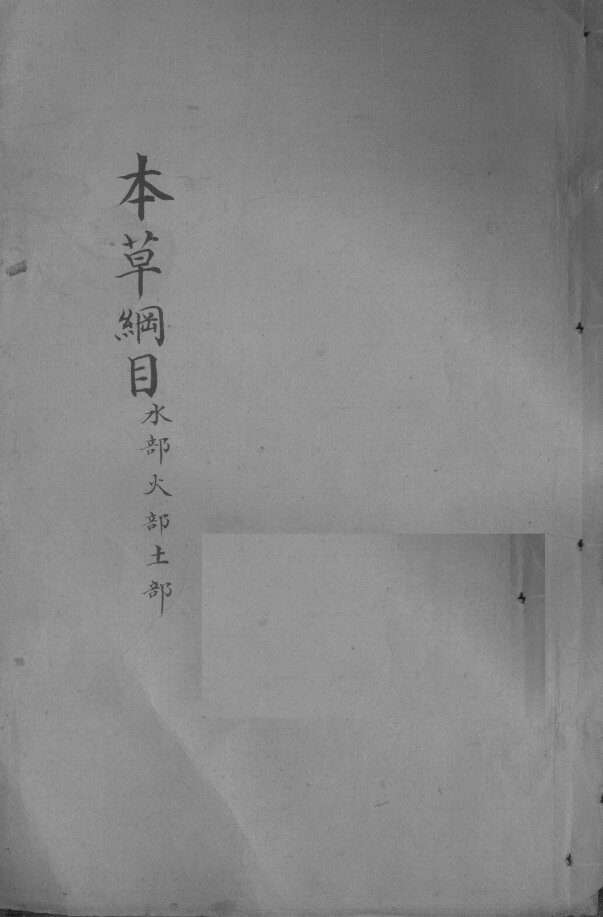 本草綱目水部火部土部